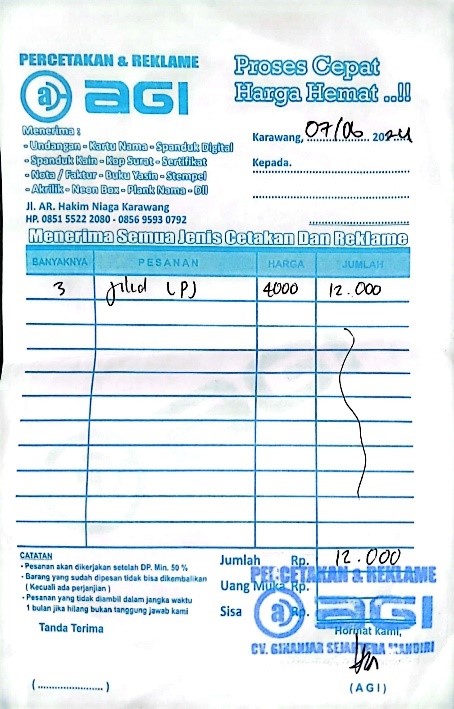 PERCETAKAN & REKLAME
AGI
Proses Cepat
Harga Hemat ..!!
Menerima :
- Undangan - Kartu Nama - Spanduk Digital
- Spanduk Kain - Kop Surat - Sertifikat
- Nota / Faktur - Buku Yasin - Stempel
- Akrilik - Neon Box - Plank Nama - Dll
Jl. AR. Hakim Niaga Karawang
HP. 0851 5522 2080 - 0856 9593 0792
Karawang, 07/06 2024
Kepada.
Menerima Semua Jenis Cetakan Dan Reklame
BANYAKNYA PESANAN HARGA JUMLAH
3 Jilid LPJ 4000 12.000
CATATAN
- Pesanan akan dikerjakan setelah DP. Min. 50 %
- Barang yang sudah dipesan tidak bisa dikembalikan
( Kecuali ada perjanjian )
- Pesanan yang tidak diambil dalam jangka waktu
1 bulan jika hilang bukan tanggung jawab kami
Jumlah Rp. 12.000
Uang Muka Rp.
Sisa Rp.
PERCETAKAN & REKLAME
AGI
CV. GINANJAR SEJAHTERA MANDIRI
Tanda Terima
Hormat kami,
(......................)
(AGI)